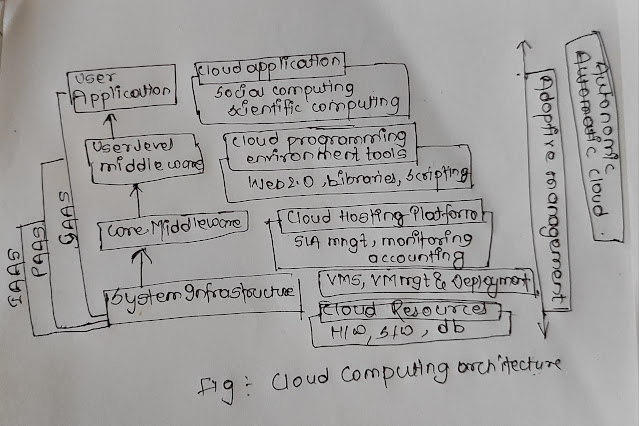 User
Application
Cloud application
Social computing
scientific computing
User level
middleware
Cloud programming
environment tools
Web 2.0, Libraries, scripting
Core Middleware
Cloud Hosting Platform
SLA mngt, monitoring
accounting
System Infrastructure
VMS, VM mgt & Deployment
Cloud Resources
H/W, S/W, db
IAAS
PAAS
SAAS
Adoptive management
Autonomic
Automatic Cloud.
Fig: Cloud Computing architecture